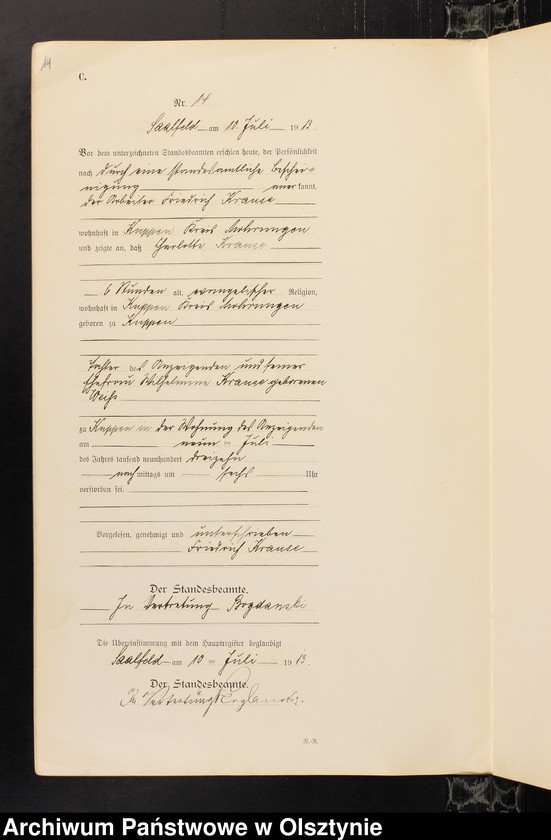 14
C.
Nr. 14
Saalfeld am 10. Juli 1913.
Vor dem unterzeichneten Standesbeamten erschien heute, der Persönlichkeit
nach durch eine standesamtliche Beschei-
nigung anerkannt,
der Arbeiter Friedrich Krause
wohnhaft in Kuppen Kreis Mohrungen
und zeigte an, daß Charlotte Krause
6 Stunden alt, evangelischer Religion,
wohnhaft in Kuppen Kreis Mohrungen
geboren zu Kuppen
Tochter des Anzeigenden und seiner
Ehefrau Wilhelmine Krause geborenen
Weiß
zu Kuppen in der Wohnung des Anzeigenden
am neun ten Juli
des Jahres tausend neunhundert dreizehn
nachmittags um sechs Uhr
verstorben sei.
Vorgelesen, genehmigt und unterschrieben
Friedrich Krause
Der Standesbeamte.
In Vertretung Bogdanski
Die Übereinstimmung mit dem Hauptregister beglaubigt
Saalfeld am 10 ten Juli 1913.
Der Standesbeamte.
In Vertretung Bogdanski.
Archiwum Państwowe w Olsztynie